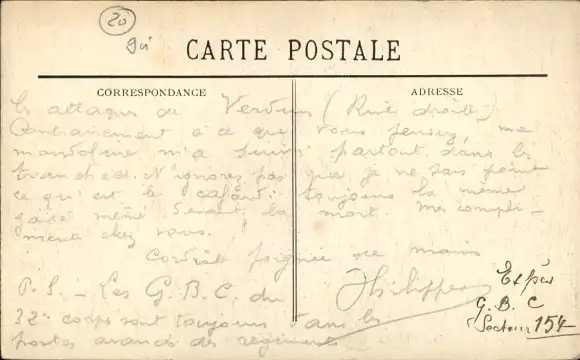 20
CARTE POSTALE
CORRESPONDANCE
ADRESSE
les attaques de Verdun (Rive droite).
Contrairement à ce que vous pensez, ma
mandoline m'a suivi partout dans les
tranchées. N'ignorez pas que je ne sais point
ce qu'est le cafard: toujours la même
gaité même devant la mort. Mes compli-
ments chez vous.
Cordiale poignée de mains
Philippe
P.S. - Les G.B.C. du
32e corps sont toujours dans les
postes avancés des régiments
G.B.C
Secteur 154